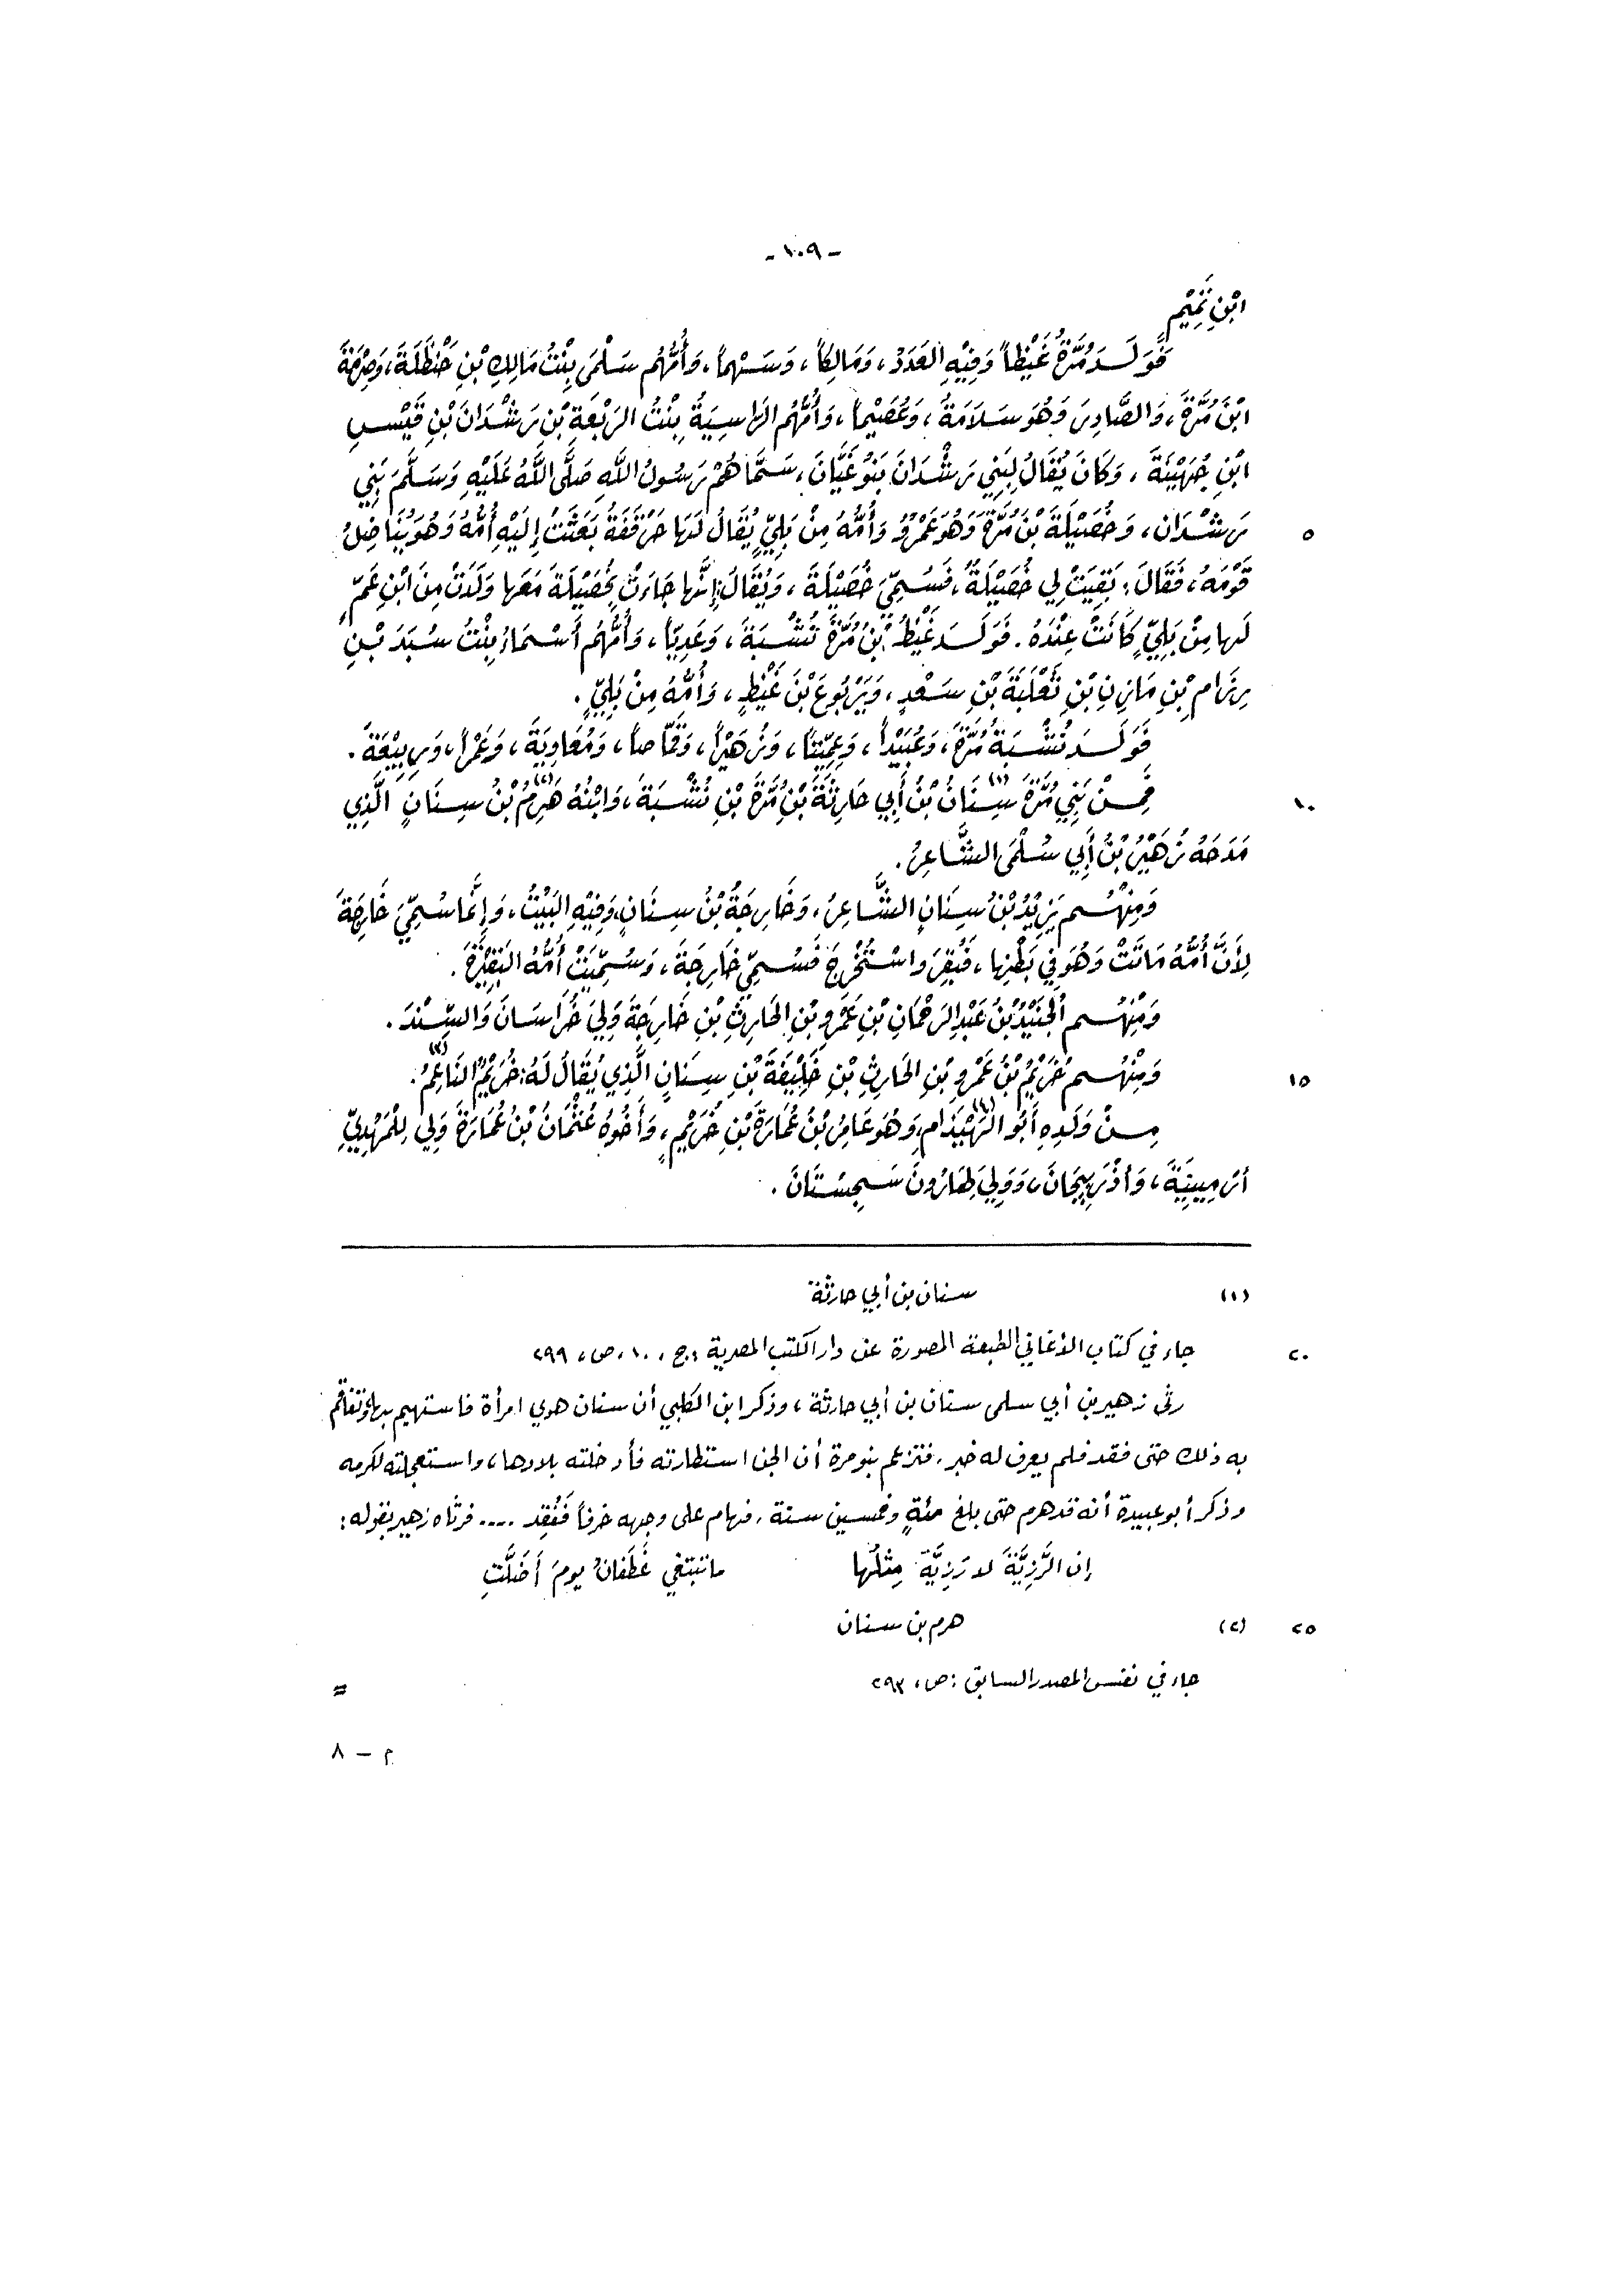 - ١٠٩ -
ابْنِ تَمِيْمٍ
فَوَلَـدَ مُرَّةُ غَيْظاً وَفِيْهِ العَدَدُ، وَمَالِكاً، وَسَـهْماً، وَأُمُّهُم سَلْمَى بِنْتُ مَالِكِ بْنِ حَنْظَلَةَ، وَصِرْمَةَ
ابْنَ مُرَّةَ، وَالصَّادِرَ وَهُوَ سَلَامَةُ، وَعُصَيْماً، وَأُمُّهُم الرَّاسِبِيَّةُ بِنْتُ الرَّبْعَةِ بْنِ رَشْدَانَ بْنِ قَيْسِ
ابْنِ جُهَيْنَةَ، وَكَانَ يُقَالُ لِبَنِي رَشْدَانَ بَنُو غَيَّانَ، سَمَّاهُمْ رَسُولُ اللَّهِ صَلَّى اللَّهُ عَلَيْهِ وَسَلَّمَ بَنِي
٥ رَشْدَانَ، وَخُصَيْلَةَ بْنَ مُرَّةَ وَهُوَ عَمْرٌو وَأُمُّهُ مِنْ بَلِيٍّ يُقَالُ لَهَا حَرْقَفَةُ بَعَثَتْ إِلَيْهِ أُمُّهُ وَهُوَ يُنَاضِلُ
قَوْمَهُ، فَقَالَ: بَقِيَتْ لِي خُصَيْلَةٌ، فَسُمِّيَ خُصَيْلَةَ، وَيُقَالُ: إِنَّهَا جَاءَتْ بِخُصَيْلَةَ مَعَهَا وَلَدَتْ مِنَ ابْنِ عَمٍّ
لَهَا مِنْ بَلِيٍّ كَانَتْ عِنْدَهُ. فَوَلَـدَ غَيْظُ بْنُ مُرَّةَ نُشْبَةَ، وَعَدِيّاً، وَأُمُّهُم أَسْمَاءُ بِنْتُ سُبَدَ بْنِ
رِزَامِ بْنِ مَازِنِ بْنِ ثَعْلَبَةَ بْنِ سَعْدٍ، وَيَرْبُوعَ بْنَ غَيْظٍ، وَأُمُّهُ مِنْ بَلِيٍّ.
فَوَلَـدَ نُشْـبَةُ مُرَّةَ، وَعُبَيْداً، وَعِمِّيتاً، وَزُهَيْراً، وَقَمَّاصاً، وَمُعَاوِيَةَ، وَعَمْراً، وَرَبِيْعَةَ.
١٠ فَمِـنْ بَنِي مُرَّةَ سِنَانُ (١) بْنُ أَبِي حَارِثَةَ بْنِ مُرَّةَ بْنِ نُشْبَةَ، وَابْنُهُ هَرِمُ (٢) بْنُ سِنَانٍ الَّذِي
مَدَحَهُ زُهَيْرُ بْنُ أَبِي سُلْمَى الشَّاعِرُ.
وَمِنْهُـم يَزِيْدُ بْنُ سِنَانٍ الشَّاعِرُ، وَخَارِجَةُ بْنُ سِنَانٍ، وَفِيْهِ البَيْتُ، وَإِنَّمَا سُمِّيَ خَارِجَةَ
لِأَنَّ أُمَّهُ مَاتَتْ وَهُوَ فِي بَطْنِهَا، فَبُقِرَ واسْتُخْرِجَ فَسُمِّيَ خَارِجَةَ، وَسُمِّيَتْ أُمُّهُ البَقِيْرَةَ.
وَمِنْهُـم الْجُنَيْدُ بْنُ عَبْدِ الرَّحْمَانِ بْنِ عَمْرِو بْنِ الحَارِثِ بْنِ خَارِجَةَ وَلِيَ خُرَاسَانَ وَالسِّنْدَ.
١٥ وَمِنْهُـم خُرَيْمُ بْنُ عَمْرِو بْنِ الحَارِثِ بْنِ خَلِيْفَةَ بْنِ سِنَانٍ الَّذِي يُقَالُ لَهُ: خُرَيْمٌ النَّاعِمُ (٣).
مِـنْ وَلَدِهِ أَبُو الهَيْذَامِ (٤)، وَهُوَ عَامِرُ بْنُ عُمَارَةَ بْنِ خُرَيْمٍ، وَأَخُوهُ عُثْمَانُ بْنُ عُمَارَةَ وَلِيَ لِلْمَهْدِيِّ
أرْمِينِيَّةَ، وَأَذْرَبِيجَانَ، وَوَلِيَ لِهَارُونَ سَجِسْتَانَ.
(١) سنان بن أبي حارثة
٢٠ جاء في كتاب الأغاني الطبعة المصورة عن دار الكتب المصرية: ج، ١٠، ص، ٢٩٩
رثى زهير بن أبي سلمى سنان بن أبي حارثة، وذكر ابن الكلبي أن سنان هوي امرأة فاستهيم بها، وتفاقم
به ذلك حتى فقد فلم يعرف له خبر، فتزعم بنو مرة أن الجن استطارته فأدخلته بلادها، واستعجلته لكرمه
وذكر أبو عبيدة أنه قد هرم حتى بلغ مئةٍ وخمسين سنة، فهام على وجهه خرفاً فَفُقِد .... فرثاه زهير بقوله:
إن الرَّزِيَّةَ لا رَزِيَّةَ مِثلُها ما تبتغي غَطَفانُ يومَ أَضَلَّتِ
٢٥ (٢) هرم بن سنان
جاء في نفس المصدر السابق: ص، ٢٩٣ =
م - ٨